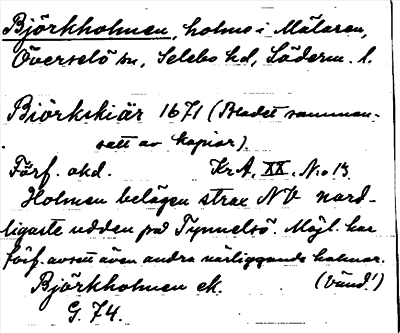 Björkholmen, holme i Mälaren,
Överselö sn, Selebo hd, Söderm. l.
Biörkskiär 1671 (Bladet samman-
satt av kopior).
Förf. okd. Kr.A. XX. No 13
Holmen belägen strax NV nord-
ligaste udden på Tynnelsö. Möjl. har
förf. avsett även andra närliggande holmar.
Björkholmen ek. (Vänd!)
G. 74.